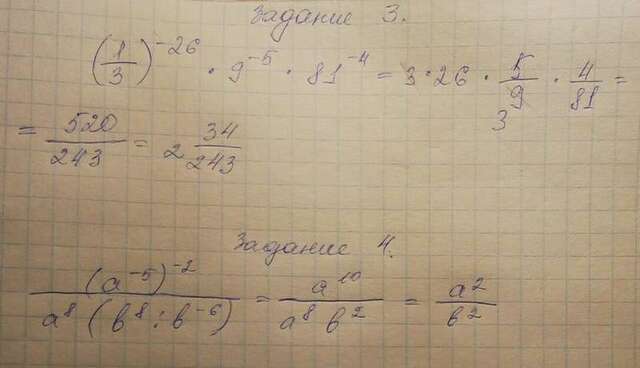 Задание 3.
(1/3)^-26 · 9^-5 · 81^-4 = 3 · 26 · 5/9 · 4/81 =
3
= 520/243 = 2 34/243
Задание 4.
(a^-5)^-2 / a^8 (b^8 : b^-6) = a^10 / a^8 b^2 = a^2 / b^2